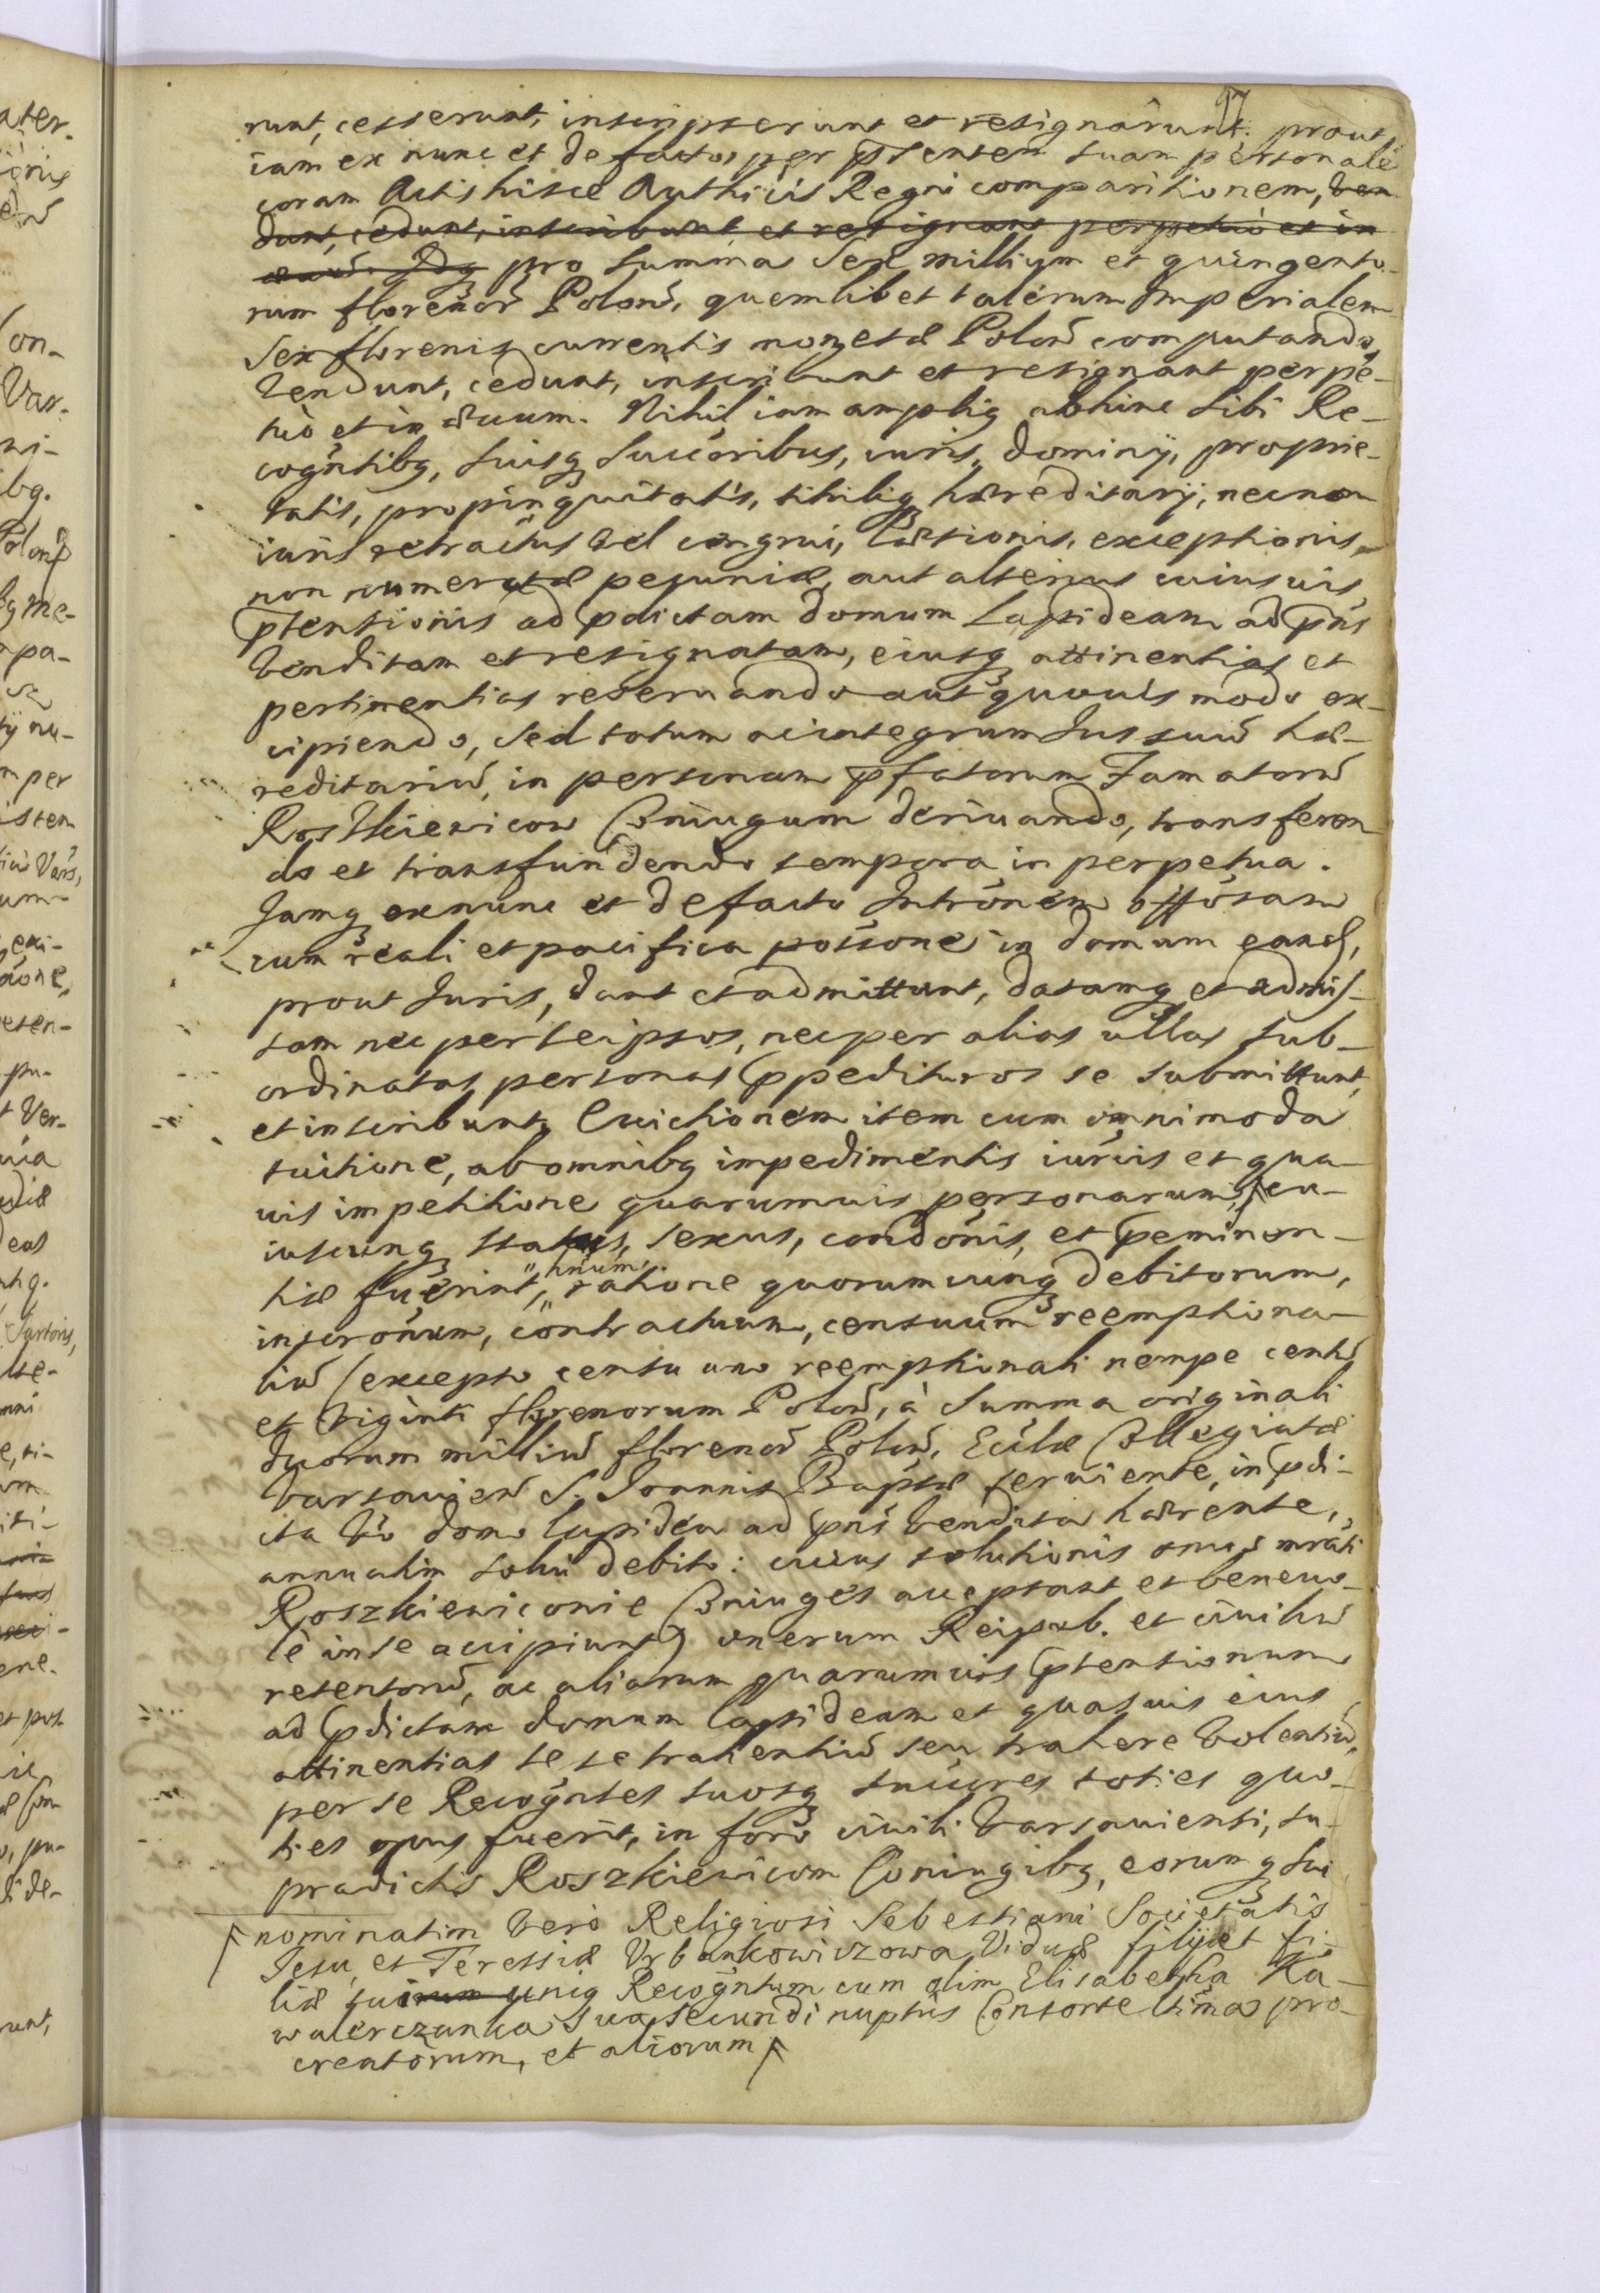 97
runt, cesserunt, inscripserunt et resignârunt. prout
iam ex nunc et de facto, per p̄sentem suam personalē
coram Actis hisce Authicis Regni comparitionem, ven
dunt, cedunt, inscribunt, et resignant perpetuò et in
æuū. Idq pro summa Sex millium et quingento-
rum florenor̄ Polon̄, quemlibet talerum Imperialem
Sex florenis currentis monetæ Polon̄ computando,
Vendunt, cedunt, inscribunt et resignant perpe-
tuò et in æuum. Nihil iam ampliq abhinc sibi Re-
cogn̄tibq, suisq succ̄oribus, iuris, dominÿ, proprie-
tatis, propinquitatis, tituliq hæreditarÿ, necnon
iuris retractus vel congrui, læsionis, exceptionis,
non numeratæ pecuniæ, aut alterius cuiusuis
p̄tensionis ad p̄dictam domum lapideam ad p̄ns
Venditam et resignatam, eiusq attinentias et
pertinentias reseruando aut quouis modo ex-
cipiendo, Sed totum ac integrum Jus suum hæ-
reditariū, in personam p̄fatorum Famatorū
Roszkiewicow Coniugum deriuando, transferen
do et transfundendo tempora in perpetua.
Jamq ex nunc et de facto Intrōnem off̄osam
cum reali et pacifica poss̄one in domum eand,
prout Juris, dant et admittunt, datamq et admis-
sam nec per se ipsos, nec per alias ullas sub-
ordinatas personas p̄pedituros se submittunt,
et inscribunt, Euictionem item cum omnimoda
tuitione, ab omnibq impedimentis iuris et qua-
uis impetitione quarumuis personarum, F cu-
iuscunq status, sexus, condōnis, et p̄eminen-
tiæ fuerint, ratione quorumcunq debitorum,
inscrōnum, contractuum, censuum reemptiona-
liū (excepto censu uno reemptionali nempe centū
et Viginti florenorum Polon̄, à Summa originali
duorum milliū florenor̄ Polon̄, Eccl̄æ Collegiatæ
Varsouien̄ S. Joannis Baptæ seruiente, in p̄di-
cta v̄o domo lapidea ad p̄ns vendita hærente,
annuatim solui debito: cuius solutionis onus mrāti
Roszkiewiconie Coniuges acceptant et beneuo-
lè in se accipiunt) onerum Reipub. et ciuiliū
retentorū, ac aliarum quarumuis p̄tensionum
ad p̄dictam domum lapideam et quasuis eius
attinentias se se trahentiū seu trahere Volentiū,
per se Recogn̄tes suosq succ̄ores toties quo-
ties opus fuerit, in foro ciuili Varsauiensi, su-
pradictis Roszkiewicom Coniugibq, eorumq suc
F nominatim verò Religiosi Sebestiani Societatis
Jesu, et Teressiæ Vrbankowiczowa, Viduæ filÿ et fi-
liæ suorum uniq Recogn̄tum cum olim Elisabetha Ka-
walerczanka Sua Secundi nuptiis Consorte l̄tima pro-
creatorum, et aliorum F